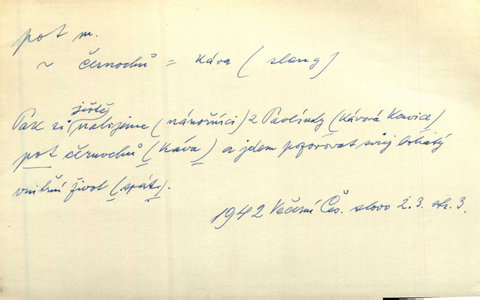 pot m.
~ černochů = káva (slang)
Pak si ještě nalejeme (námořníci) z Pavlínky (kávová konvice)
pot černochů (káva) a jdem pozorovat svůj bohatý
vnitřní život (spáti).
1942 Večerní Čes. slovo 2.3. str. 3.